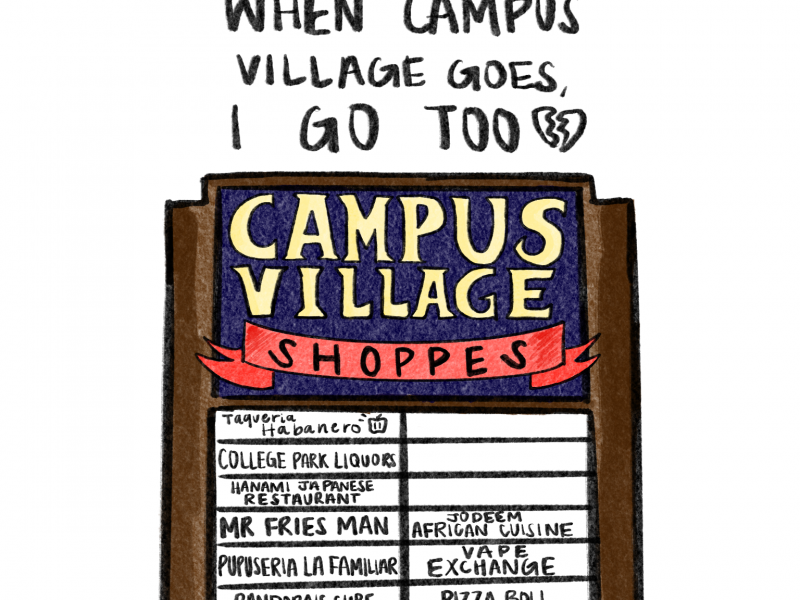 WHEN CAMPUS
VILLAGE GOES,
I GO TOO
CAMPUS
VILLAGE
SHOPPES
Taqueria
Habanero
COLLEGE PARK LIQUORS
HANAMI JAPANESE
RESTAURANT
MR FRIES MAN
JODEEM
AFRICAN CUISINE
PUPUSERIA LA FAMILIAR
VAPE
EXCHANGE
PANDORA'S CUBE
PIZZA BOLI